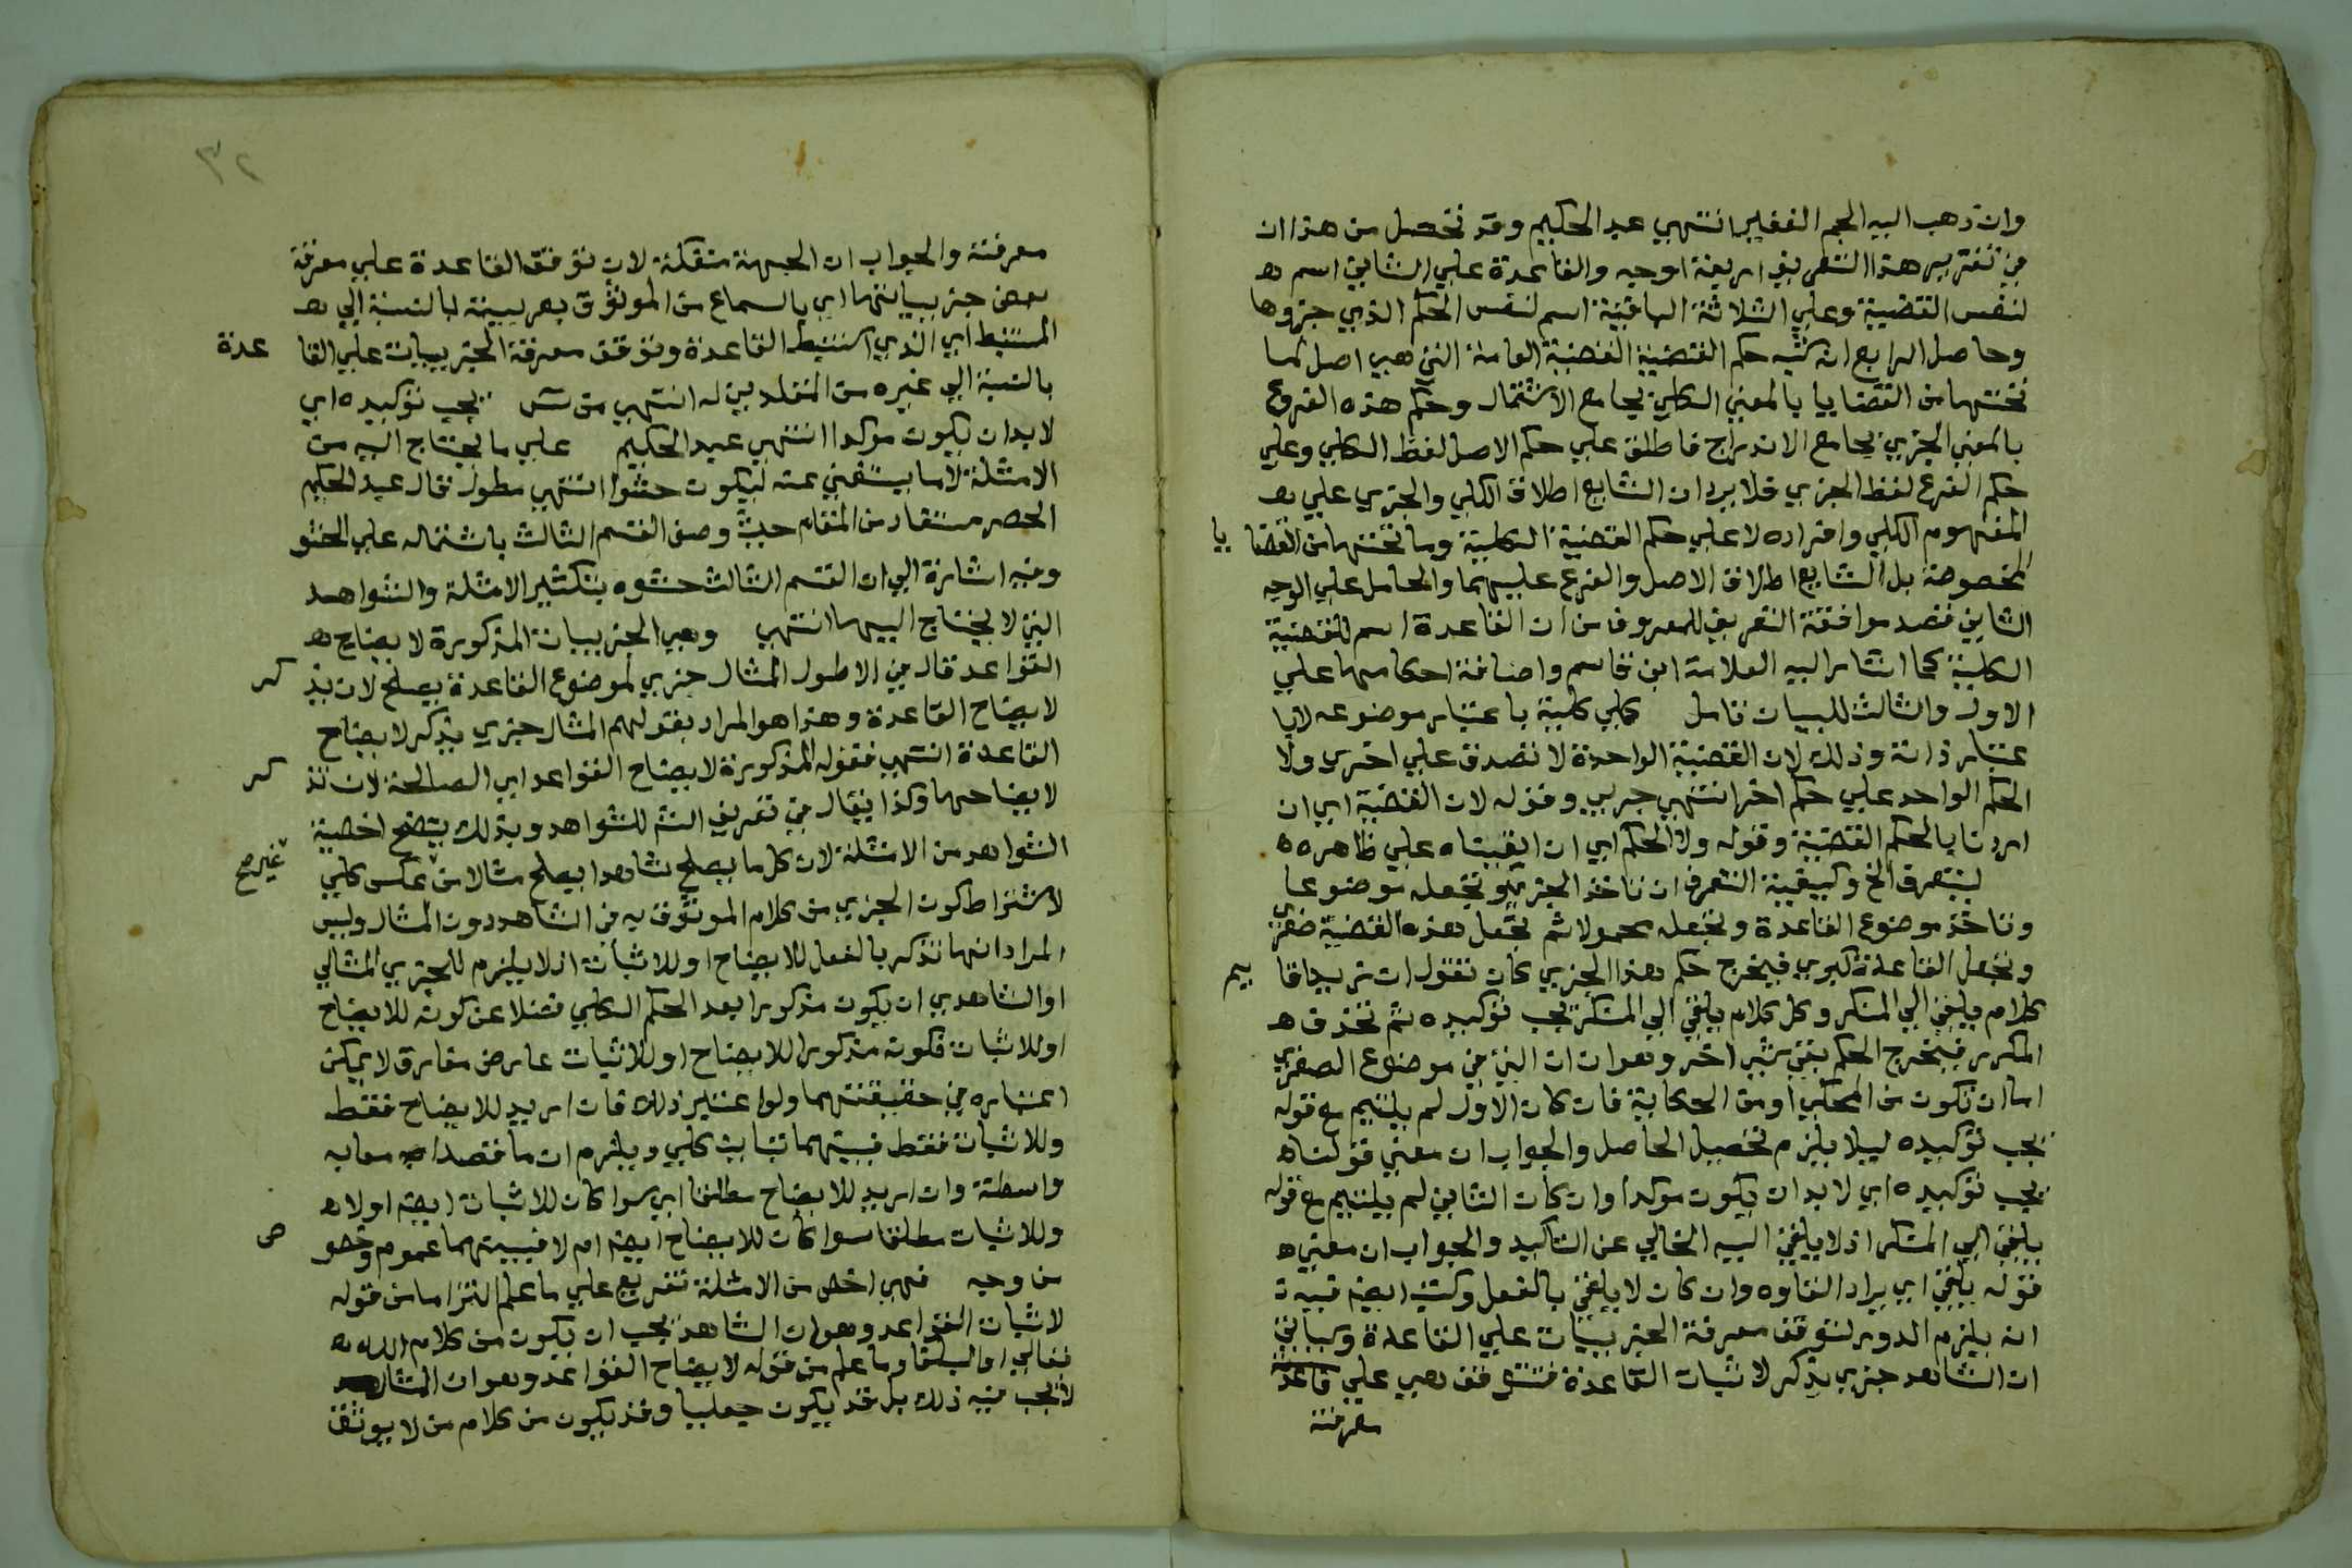 وان ذهب اليه الجم الغفير انتهي عبد الحكيم وقد تحصل من هذا ان
في تقرير هذا التعريف اربعة اوجه والقاعدة علي الثاني اسم
لنفس القضية وعلي الثلاثة الباقية اسم لنفس الحكم الذي جزوها
وحاصل الرابع انه شبه حكم القضية القضية العامة التي هي اصل لما
تحتها من القضايا بالمعني الكلي بجامع الاشتمال وحكم هذه الفروع
بالمعني الجزي بجامع الاندراج فاطلق علي حكم الاصل لفظ الكلي وعلي
حكم الفرع لفظ الجزي فلا يرد ان الشايع اطلاق الكلي والجزي علي
المفهوم الكلي وافراده لا علي حكم القضية الكلية وما تحتها من القضايا
المخصوصة بل الشايع اطلاق الاصل والفرع عليهما والحامل علي الوجه
الثاني قصد موافقة التعريف المعروف من ان القاعدة اسم للقضية
الكلية كما اشار اليه العلامة ابن قاسم واضافة احكامها علي
الاول والثالث للبيان تامل كلي كلية باعتبار موضوعه لابا
عتبار ذاته وذلك لان القضية الواحدة لا تصدق علي اخري ولا
الحكم الواحد علي حكم اخر انتهي جربي وقوله لان القضية اي ان
اردنا بالحكم القضية وقوله ولا الحكم اي ان ابقيناه علي ظاهره
ليتعرف الخ وكيفية التعرف ان ناخذ الجزي ونجعله موضوعا
وناخذ موضوع القاعدة ونجعله محمولا ثم نجعل هذه القضية صغري
ونجعل القاعدة كبري فيخرج حكم هذا الجزي كان نقول ان زيدا قايم
كلام يلقي الي المنكر وكل كلام يلقي الي المنكر يجب توكيده ثم نحذف
المكرر فيخرج الحكم بقي شي اخر وهو ان ان التي في موضوع الصغري
اما ان تكون من المحكي او من الحكاية فان كان الاول لم يلتيم مع قوله
يجب توكيده ليلا يلزم تحصيل الحاصل والجواب ان معني قولنا
يجب توكيده اي لا بد ان يكون موكدا وان كان الثاني لم يلتيم مع قوله
يلقي الي المنكر اذ لا يلقي اليه الخالي عن التاكيد والجواب ان معني
قوله يلقي اي يراد القاوه وان كان لا يلقي بالفعل وكتب ايضا فيه
انه يلزم الدور لتوقف معرفة الجزييات علي القاعدة وسياتي
ان الشاهد جزي يذكر لاثبات القاعدة فتتوقف هي علي
معرفته
٣٢
معرفته والجواب ان الجهة منفكة لان توقف القاعدة علي معرفة
بعض جزيياتها اي بالسماع من الموثوق بعربيته بالنسبة الي
المستنبط اي الذي استنبط القاعدة وتوقف معرفة الجزييات علي القاعدة
بالنسبة الي غيره من المقلدين له انتهي من يجب توكيده اي
لابدان يكون موكدا انتهي عبد الحكيم علي ما يحتاج اليه من
الامثلة لا ما يستغني عنه ليكون حشوا انتهي مطول قال عبد الحكيم
الحصر مستفاد من المقام حيث وصف القسم الثالث باشتماله علي الحشو
وفيه اشارة الي ان القسم الثالث حشوه بتكثير الامثلة والشواهد
التي لا يحتاج اليها انتهي وهي الجزييات المذكورة لايضاح
القواعد قال في الاطول المثال جزي لموضوع القاعدة يصلح لان يذكر
لايضاح القاعدة وهذا هو المراد بقولهم المثال جزي يذكر لايضاح
القاعدة انتهي فقوله المذكورة لايضاح القواعد اي الصالحة لان تذكر
لايضاحها وكذا يقال في تعريف الشم للشواهد وبذلك يتضح اخصية
الشواهد من الامثلة لان كل ما يصلح شاهدا يصلح مثالا من غير عكس كلي صح
لاشتراط كون الجزي من كلام الموثوق به في الشاهد دون المثال وليس
المراد انها تذكر بالفعل للايضاح او للاثبات اذ لا يلزم للجزي المثالي
او الشاهدي ان يكون مذكورا بعد الحكم الكلي فضلا عن كونه للايضاح
او للاثبات فكونه مذكورا للايضاح او للاثبات عارض مفارق لا يمكن
اعتباره في حقيقتهما ولو اعتبر ذلك فان اريد للايضاح فقط
وللاثبات فقط فبينهما تباين كلي ويلزم ان ما قصدا به معا به
واسطة وان اريد للايضاح مطلقا اي سوا كان للاثبات ايضا اولا
وللاثبات مطلقا سوا كان للايضاح ايضا ام لا فبينهما عموم وخصوص
من وجه فهي اخص من الامثلة تفريع علي ما علم التزاما من قوله
لاثبات القواعد وهو ان الشاهد يجب ان يكون من كلام الله
تعالي او البلغا وما علم من قوله لايضاح القواعد وهو ان المثال
لا يجب فيه ذلك بل قد يكون جعليا وقد يكون من كلام من لا يوثق